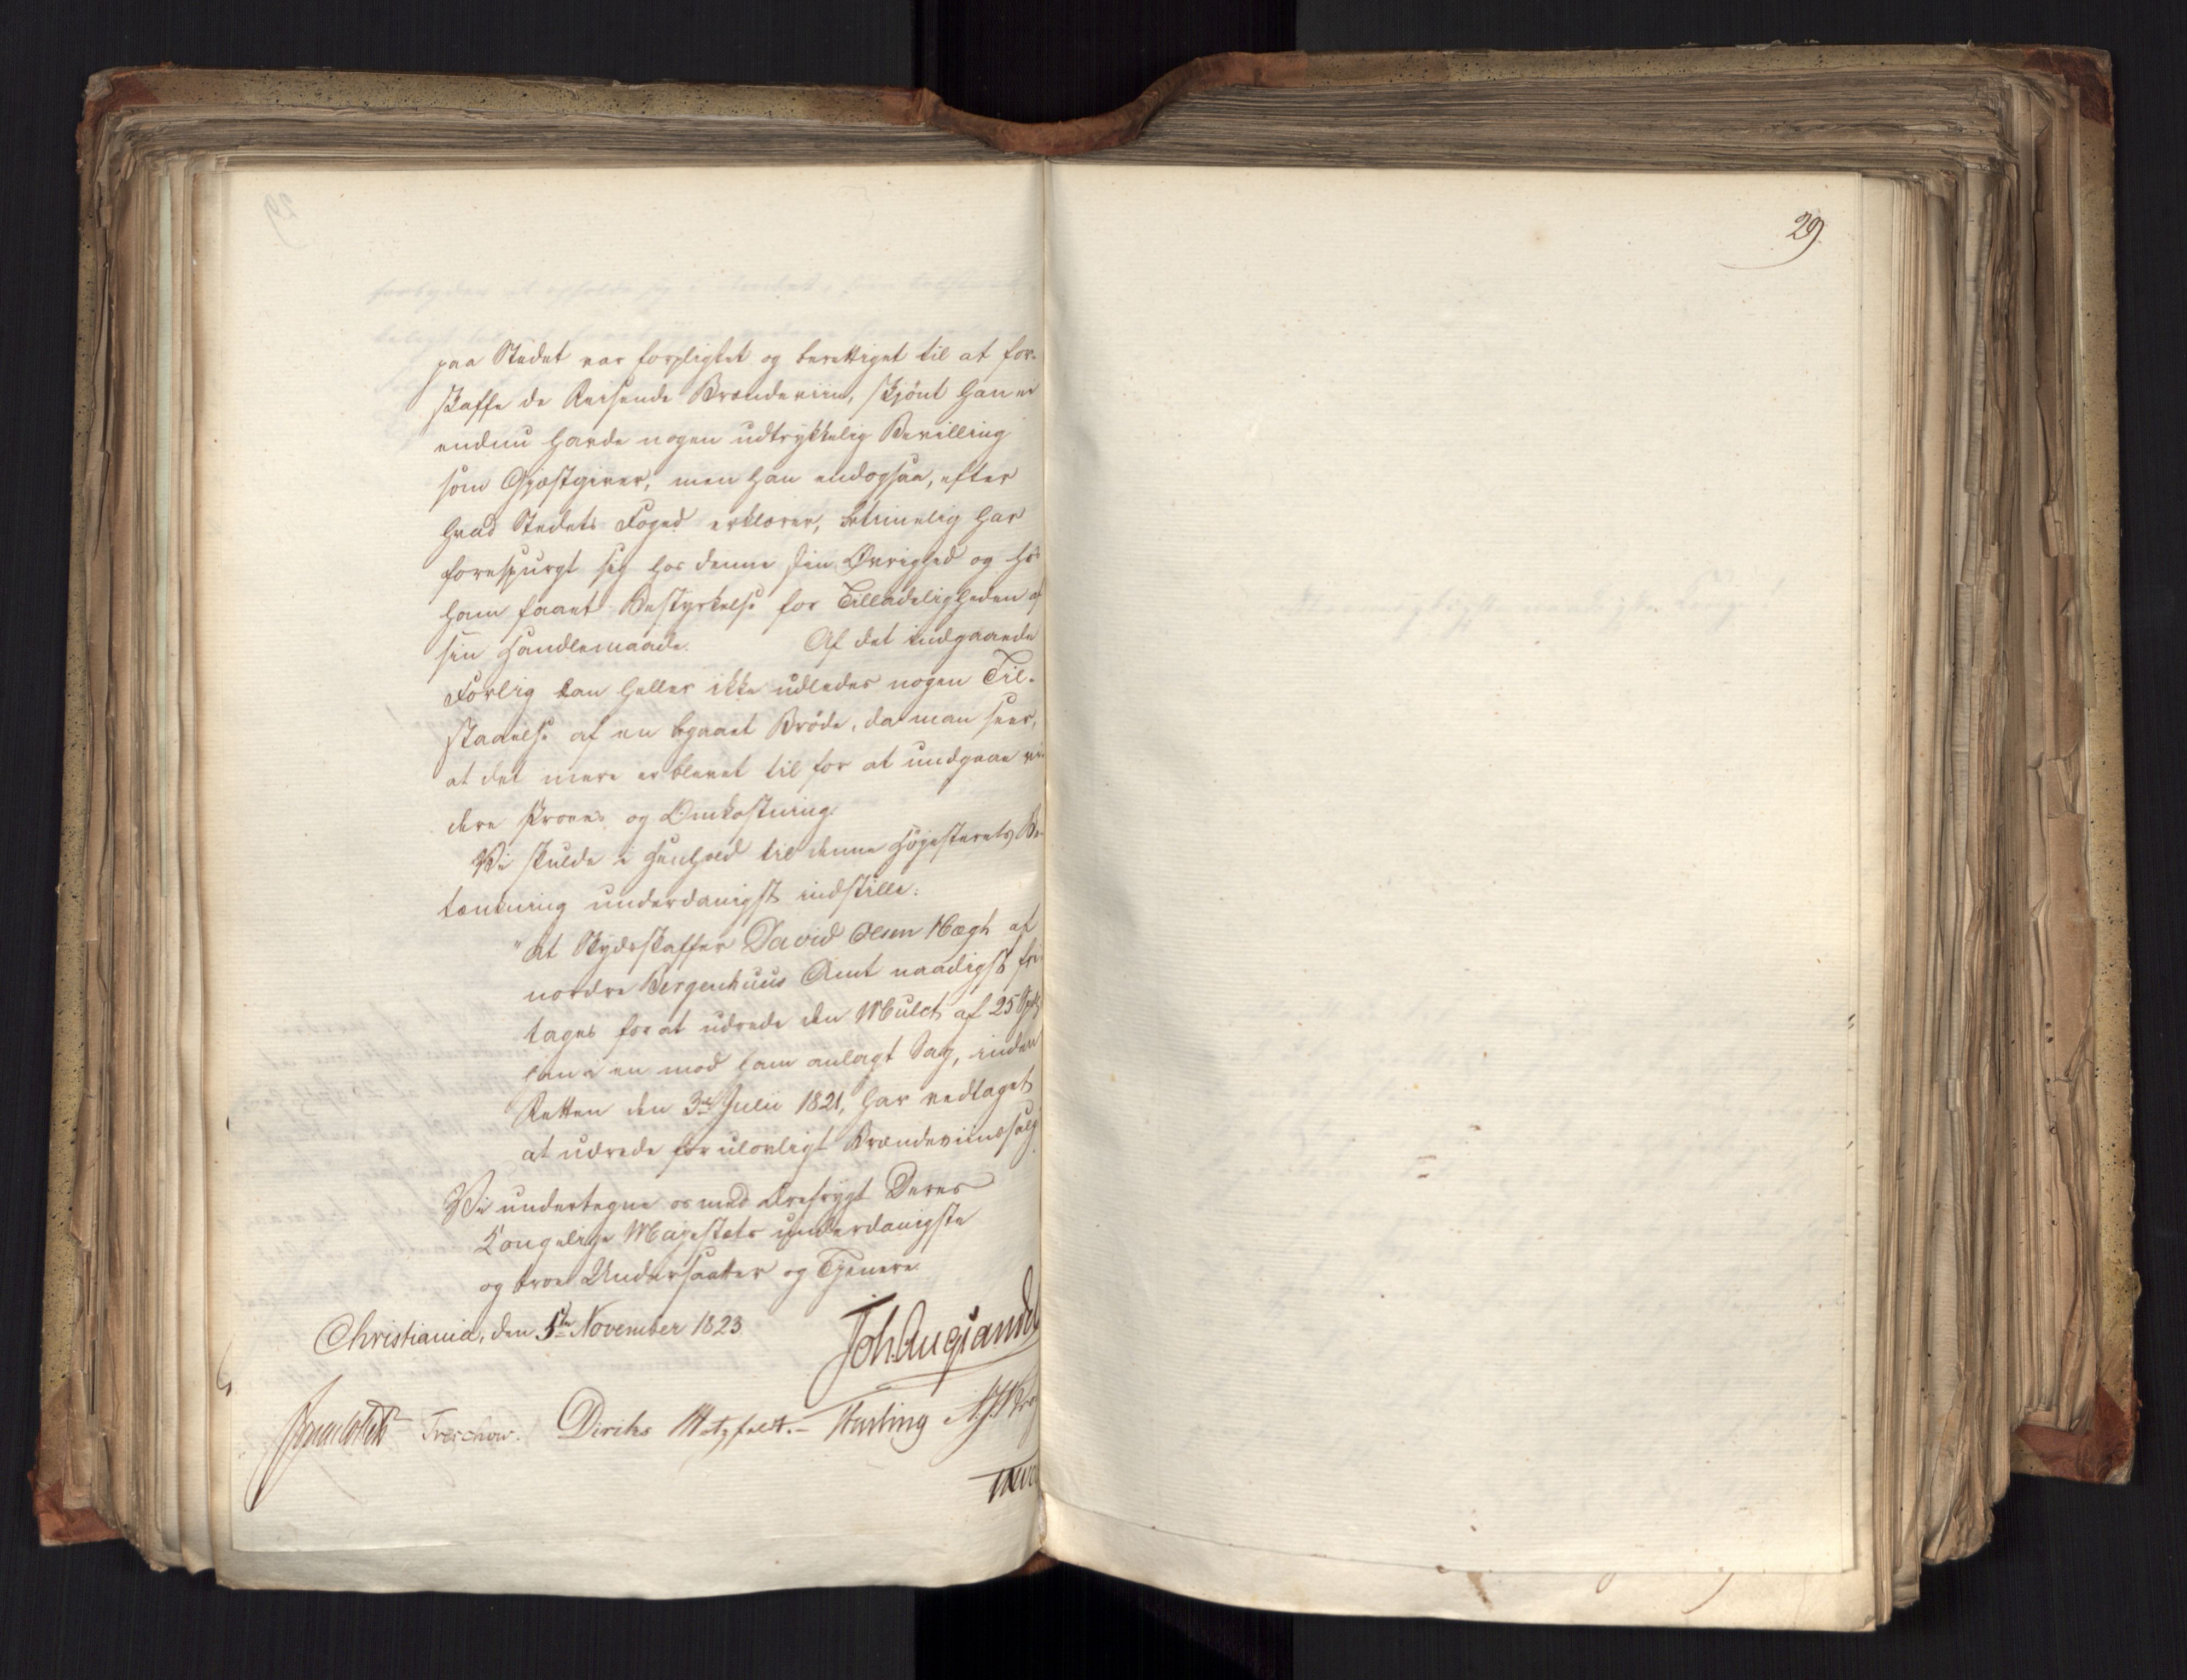 29
paa Stedet var forpligtet og berettiget til at for-
skaffe de Reisende Brændeviin, skjönt han ei
endnu havde nogen udtrykkelig Bevilling
som Gjæstgiver, men han endogsaa, efter
hvad Stedets Foged erklærer, betimelig har
forespurgt sig hos denne sin Øvrighed og hos
ham faaet Bestyrkelse for Tilladeligheden af
sin Handlemaade. Af det indgaaede
Forlig kan heller ikke udledes nogen Til-
staaelse af en begaaet Bröde, da man seer,
at det mere er blevet til for at undgaae vi-
dere Proces og Omkostning.
Vi skulde i Henhold til denne Höjesterets Be-
tænkning underdanigst indstille:
"At Skydsskaffer David Olsen Mægh af
nordre Bergenhuus Amt naadigst fri-
tages for at udrede den Mulct af 25 Spd
han i en mod ham anlagt Sag, inden
Retten den 3die Julii 1821, har vedtaget
at udrede for ulovligt Brændeviinssalg.
Vi undertegne os med Ærefrygt Deres
Kongelige Majestæts underdanigste
og troe Undersaatter og Tjenere
Christiania, den 5te November 1823
Joh. Aug. Sandel
Jonas Collett Treschow. Diriks Motzfeldt. Fasting N. J.